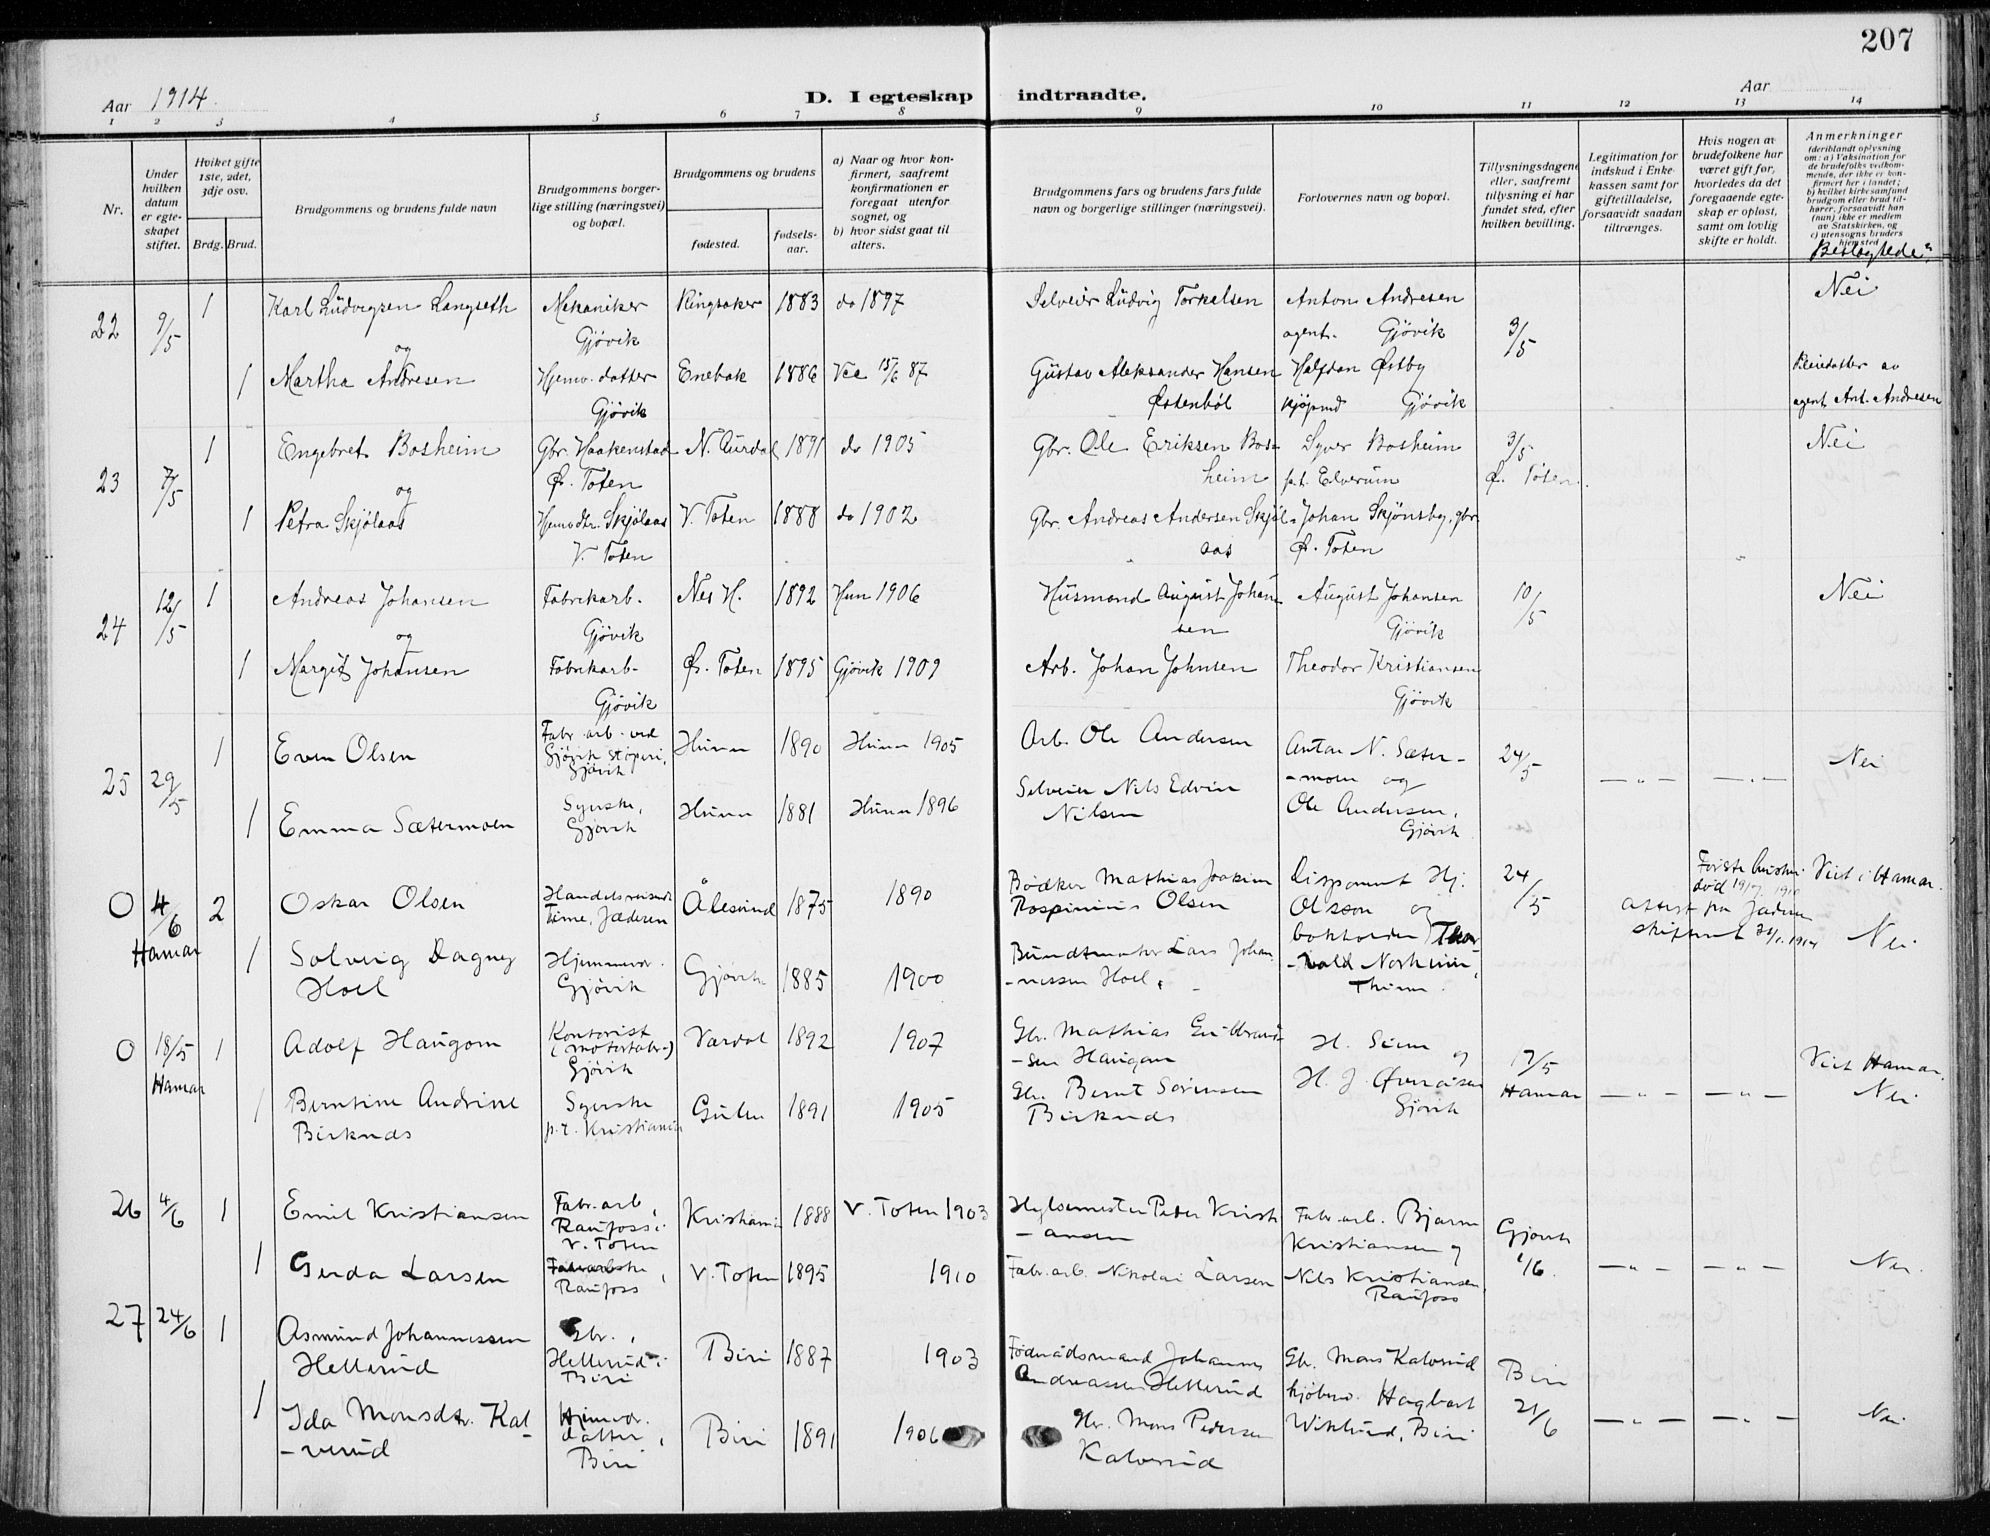 207
Aar 1914.
D. I egteskap indtraadte.
Aar
1 2 3 4 5 6 7 8 9 10 11 12 13 14
Nr.
Under hvilken datum er egteskapet stiftet.
Hviket gifte 1ste, 2det, 3dje osv.
Brdg. Brud.
Brudgommens og brudens fulde navn
Brudgommens borgerlige stilling (næringsvei) og bopæl.
Brudgommens og brudens
fødested.
fødsels-aar.
a) Naar og hvor konfirmert, saafremt konfirmationen er foregaat utenfor sognet, og
b) hvor sidst gaat til alters.
Brudgommens fars og brudens fars fulde navn og borgerlige stillinger (næringsvei).
Forlovernes navn og bopæl.
Tillysningsdagene eller, saafremt tillysning ei har fundet sted, efter hvilken bevilling.
Legitimation for indskud i Enkekassen samt for giftetilladelse, forsaavidt saadan tiltrænges.
Hvis nogen av brudefolkene har været gift før, hvorledes da det foregaaende egteskap er opløst, samt om lovlig skifte er holdt.
Anmerkninger
(deriblandt oplysning om: a) Vaksination for de brudefolks vedkommende, der ikke er konfirmert her i landet; b) hvilket kirkesamfund brudgom eller brud tilhører, forsaavidt han (hun) ikke er medlem av Statskirken, og c) utensogns bruders hjemsted
Beslægtede?
22 9/5 1 Karl Lüdvigsen Langseth Mekaniker Gjøvik Ringsaker 1883 do 1897 Selveier Lüdvig Torkelsen Anton Andresen agent. Gjøvik 3/5 Nei
og
1 Martha Andresen Hjemv. datter Gjøvik Enebak 1886 15/6 87 Güstav Aleksander Hansen Østenbøl Halfdan Østby kjøpmd Gjøvik Pleiedatter av agent Ant. Andresen
23 7/5 1 Engebret Bosheim Gbr. Haakenstad Ø. Toten N. Aurdal 1891 do 1905 Gbr. Ole Eriksen Bosheim Syver Bosheim p.t. Elverum 3/5 Ø. Toten. Nei
og
1 Petra Skjølaas Hjemvdtr. Skjølaas V. Toten V. Toten 1888 do 1902 Gbr. Andreas Andersen Skjølaas Johan Skjønsby, gbr. Ø. Toten
24 12/5 1 Andreas Johansen Fabrikarb. Gjøvik Nes H. 1892 Hun 1906 Hüsmand Aügüst Johansen Aügüst Johansen Gjøvik 10/5 Nei
og
1 Margit Johansen Fabrikarb. Gjøvik Ø. Toten 1895 Gjøvik 1909 Arb. Johan Johnsen Theodor Kristiansen Gjøvik
25 29/5 1 Even Olsen Fabr. arb. ved Gjøvik Støperi, Gjøvik Hunn 1890 Hunn 1905 Arb. Ole Andersen Anton N. Sæter-moen og 24/5 — „ — — „ — Nei
1 Emma Sætermoen Syerske, Gjøvik Hunn 1881 Hunn 1896 Selveier Nils Edvin Nilsen Ole Andersen, Gjøvik
O 4/6 Hamar 2 Oskar Olsen Handelsreisende Time, Jæderen Ålesund 1875 1890 Bødker Mathias Joakim Olsen Disponent Hj. Olsson og 24/5 Første hustru død Attest fra Jæderen Viet i Hamar.
1 Solveig Dagny Hoel Hjemmevr. Gjøvik Gjøvik 1885 1900 Bundtmaker Lars Johan-nessen Hoel. bokholder Thor-vald Norheim, Nei
O 18/5 Hamar 1 Adolf Haugom Kontorist (motorfabr.) Gjøvik Vardal 1892 1907 Gbr. Mathias Gulbrand-sen Haugom H. og 17/5 Hamar — „ — — „ — Viet Hamar.
1 Berntine Andrine Birknes Syerske p.t. Kristiania Gulen 1891 1905 Gbr. Bernt Sørensen Birknes H. J. Gjøvik Nei
26 4/6 1 Emil Kristiansen Fabr. arb., Raufoss. V. Toten Kristiania 1888 V. Toten 1903 Hylsemester Peter Kristi-ansen Fabr. arb. Bjarne Kristiansen og Gjøvik 1/6. — „ — — „ — Nei.
1 Gerda Larsen Raufoss V. Toten 1895 1910 Fabr. arb. Nikolai Larsen Nils Kristiansen, Raufoss
27 24/6 1 Asmund Johannessen Hellerud Gbr., Hellerud i Biri Biri 1887 1903 Johannes Andreassen Hellerud Gbr. Mons Kalverud kjøbm. Hagbart Wiklund, Biri Biri 21/6 — „ — — „ — Nei
1 Ida Monsdtr. Kal-verud Hjemvr. datter, Biri Biri 1891 1906 Gbr. Mons Pedersen Kalverud